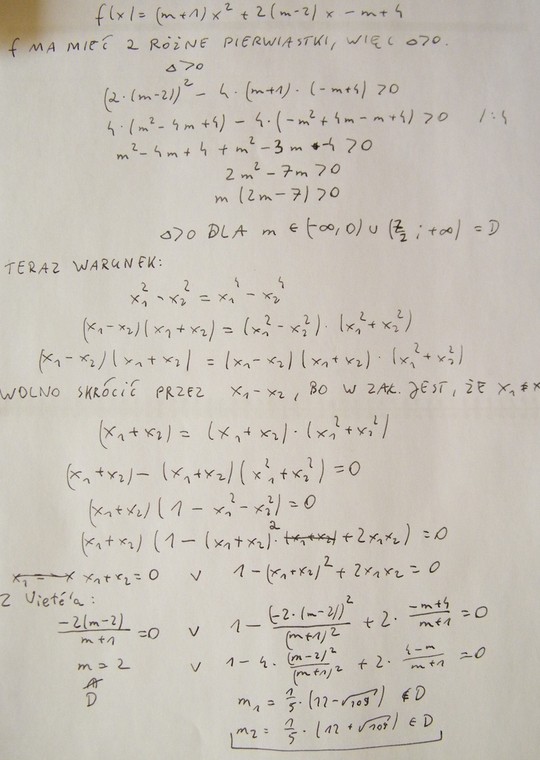 f(x) = (m+1)x² + 2(m-2)x - m+4
f MA MIEĆ 2 RÓŻNE PIERWIASTKI, WIĘC Δ>0.
Δ>0
(2·(m-2))² - 4·(m+1)·(-m+4) >0
4·(m²-4m+4) - 4·(-m²+4m-m+4) >0 /:4
m²-4m+4 + m²-3m-4 >0
2m²-7m>0
m(2m-7)>0
Δ>0 DLA m ∈ (-∞,0) ∪ (7/2; +∞) = D
TERAZ WARUNEK:
x₁² - x₂² = x₁⁴ - x₂⁴
(x₁-x₂)(x₁+x₂) = (x₁²-x₂²)·(x₁²+x₂²)
(x₁-x₂)(x₁+x₂) = (x₁-x₂)(x₁+x₂)·(x₁²+x₂²)
WOLNO SKRÓCIĆ PRZEZ x₁-x₂, BO W ZAŁ. JEST, ŻE x₁≠x
(x₁+x₂) = (x₁+x₂)·(x₁²+x₂²)
(x₁+x₂) - (x₁+x₂)(x₁²+x₂²) = 0
(x₁+x₂)(1 - x₁² - x₂²) = 0
(x₁+x₂)(1 - (x₁+x₂)² + 2x₁x₂) = 0
x₁+x₂=0 v 1-(x₁+x₂)² + 2x₁x₂ = 0
Z Viete'a:
-2(m-2)/(m+1) = 0 v 1 - (-2·(m-2))²/(m+1)² + 2·(-m+4)/(m+1) = 0
m=2 v 1 - 4·(m-2)²/(m+1)² + 2·(4-m)/(m+1) = 0
∉ D
m₁ = 1/5·(12-√109) ∉ D
m₂ = 1/5·(12+√109) ∈ D